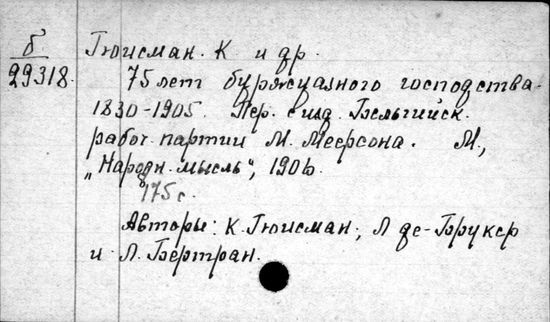 б
29318.
Гюисман. К и др.
75 лет буржуазного господства.
1830-1905. Пер. с изд. Бельгийск.
рабоч. партии М. Меерсона. М.,
„Народн. мысль", 1906.
175 с.
Авторы: К. Гюисман; Л де-Брукер
и Л. Бертран.